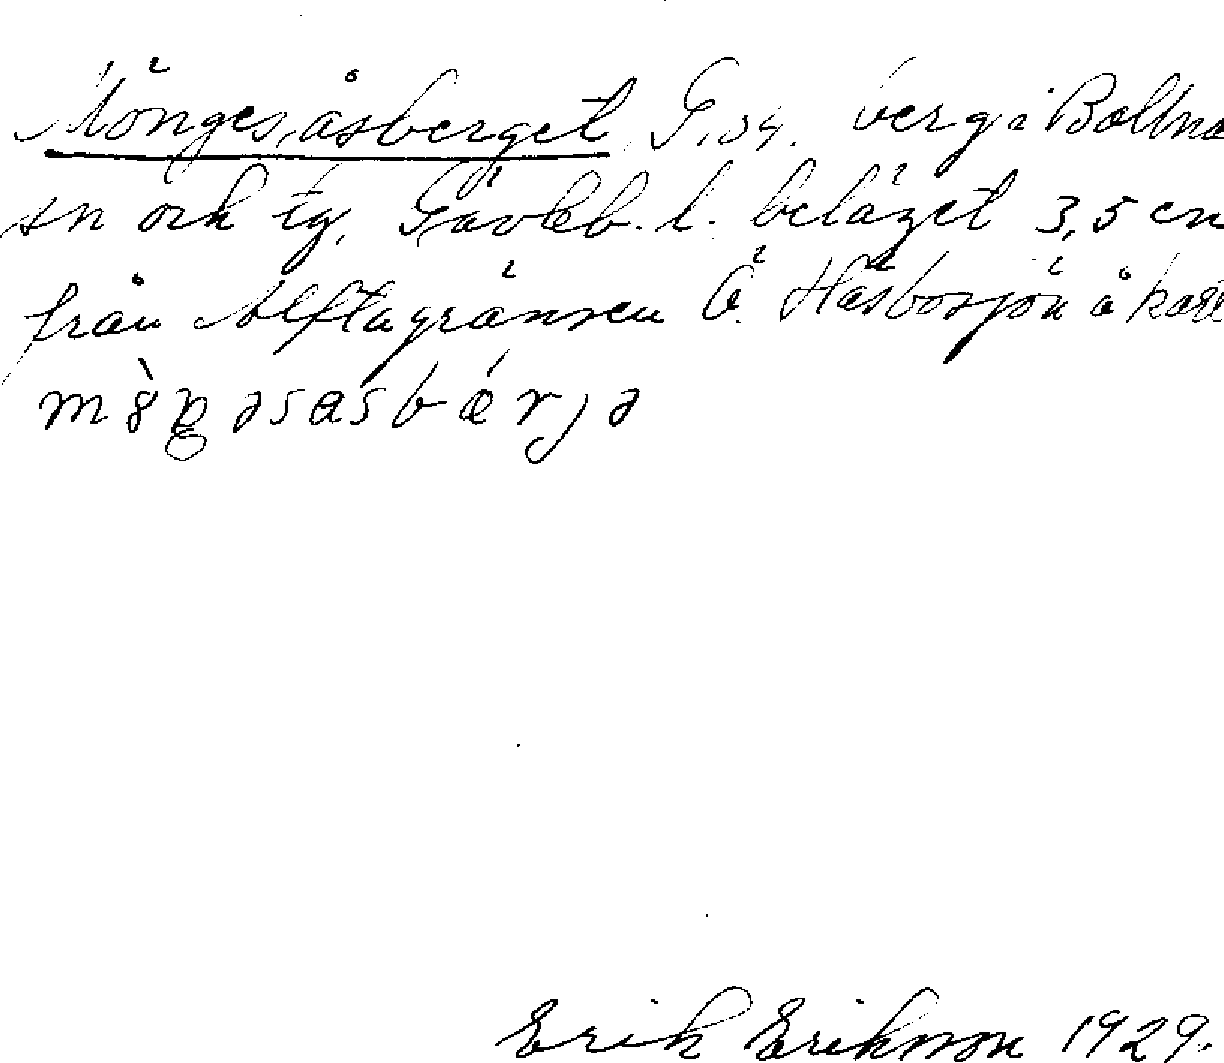 Mönges,åsberget G.34. berg i Bollnä
sn och tg, Gävleb. l. beläget 3,5 cm
från Alftagränsen Ö. Häsbosjön å kar
Erik Erikson 1929.